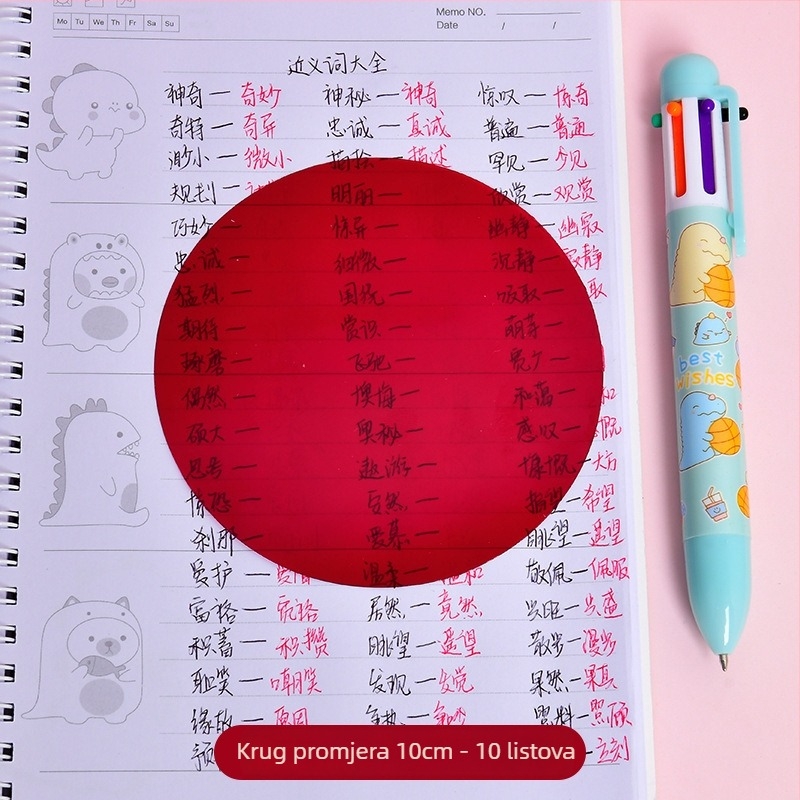 Memo NO.
Mo Tu We Th Fr Sa Su
Date / /
近义词大全
神奇—奇妙 神秘—神奇 惊叹—惊奇
奇特—奇异 忠诚—真诚 普遍—普遍
渺小—微小 描绘—描述 罕见—少见
规划— 明丽— 欣赏—观赏
巧妙— 惊异— 幽静—幽寂
忠诚— 细微— 沉静—寂静
猛烈— 围绕— 吸取—取
期待— 赏识— 萌芽—
琢磨— 飞驰— 宽广—
偶然— 懊悔— 和蔼—和
硕大— 奥秘— 感叹—慨
思考— 遨游— 慷慨—大方
惊恐— 自然— 指望—希望
刹那— 爱慕— 眺望—遥望
爱护— 温柔— 敬佩—佩服
富裕—宽裕 居然—竟然 兴旺—兴盛
积蓄—积攒 眺望—遥望 散步—漫步
耻笑—嘲笑 发现—发觉 果然—果真
缘故—原因 争执— 照料—照顾
预 —立刻
best wishes
Krug promjera 10cm - 10 listova